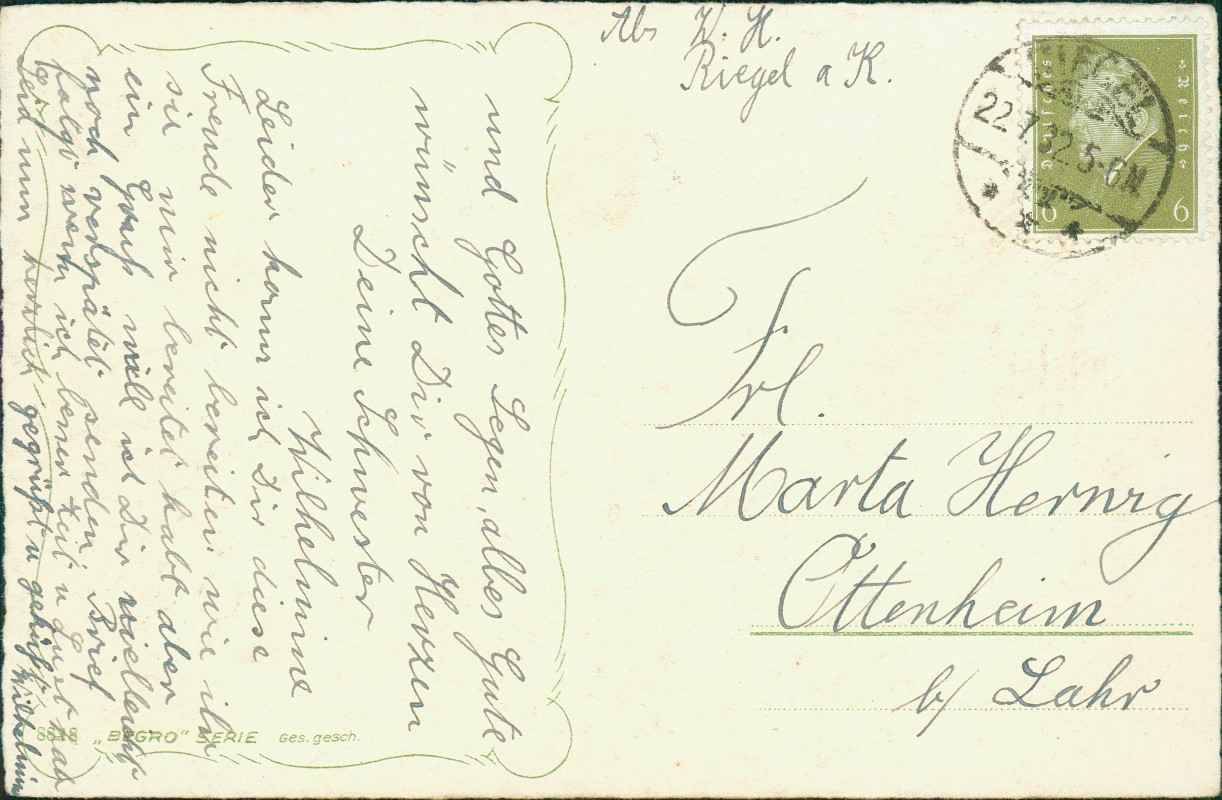 Abs W. H.
Riegel a K.
RIEGEL
22.7.32.5-6N
Deutsches Reich
6 6
Frl.
Marta Hernig
Ottenheim
b/ Lahr
und Gottes Segen, alles Gute
wünscht Dir von Herzen
Deine Schwester
Wilhelmine
Leider kann ich Dir diese
Freude nicht bereiten wie ihr
sie mir bereitet habt aber
ein will ich Dir vielleicht
noch verspätet senden. Brief
folgt wenn ich Zeit u Lust hab
Seid nun herzlich gegrüßt u geküßt Wilhelmin
8618 „BEGRO" SERIE Ges. gesch.